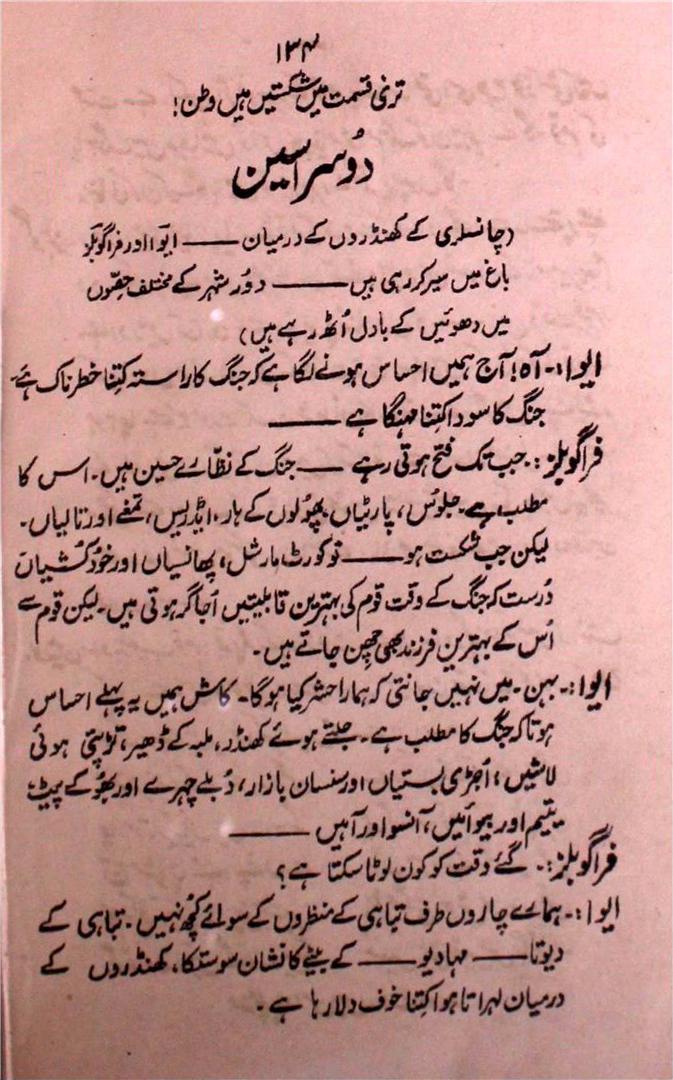 ۱۳۴
تری قسمت میں شکستیں ہیں وطن!
دُوسرا سین
(چانسلری کے کھنڈروں کے درمیان —— ایوا اور فراگوبلز
باغ میں سیر کر رہی ہیں —— دور شہر کے مختلف حصّوں
میں دھوئیں کے بادل اُٹھ رہے ہیں)
ایوا:۔ آہ! آج ہمیں احساس ہونے لگا ہے کہ جنگ کا راستہ کتنا خطرناک ہے۔
جنگ کا سودا کتنا مہنگا ہے ——
فراگوبلز:۔ جب تک فتح ہوتی رہے —— جنگ کے نظّارے حسین ہیں۔ اس کا
مطلب ہے۔ جلوُس، پارٹیاں۔ پھوُلوں کے ہار، ایڈریس، تمغے اور تالیاں۔
لیکن جب شکست ہو —— تو کورٹ مارشل، پھانسیاں اور خودکُشیاں
دُرست کہ جنگ کے وقت قوم کی بہترین قابلیتیں اُجاگر ہوتی ہیں۔ لیکن قوم سے
اُس کے بہترین فرزند بھی چھِن جاتے ہیں۔
ایوا:۔ بہن۔ میں نہیں جانتی کہ ہمارا حشر کیا ہوگا۔ کاش ہمیں یہ پہلے احساس
ہوتا کہ جنگ کا مطلب ہے۔ جلتے ہوئے کھنڈر، ملبہ کے ڈھیر، تڑپتی ہوئی
لاشیں، اُجڑی بستیاں اور سنسان بازار، دُبلے چہرے اور بھوُکے پیٹ،
یتیم اور بیوائیں، آنسو اور آہیں ——
فراگوبلز:۔ گئے وقت کو کون لوٹا سکتا ہے؟
ایوا:۔ ہمارے چاروں طرف تباہی کے منظروں کے سوائے کچُھ نہیں۔ تباہی کے
دیوتا —— مہادیو —— کے بیٹے کا نشان سوستکا، کھنڈروں کے
درمیان لہراتا ہوا کتِنا خوف دلا رہا ہے۔